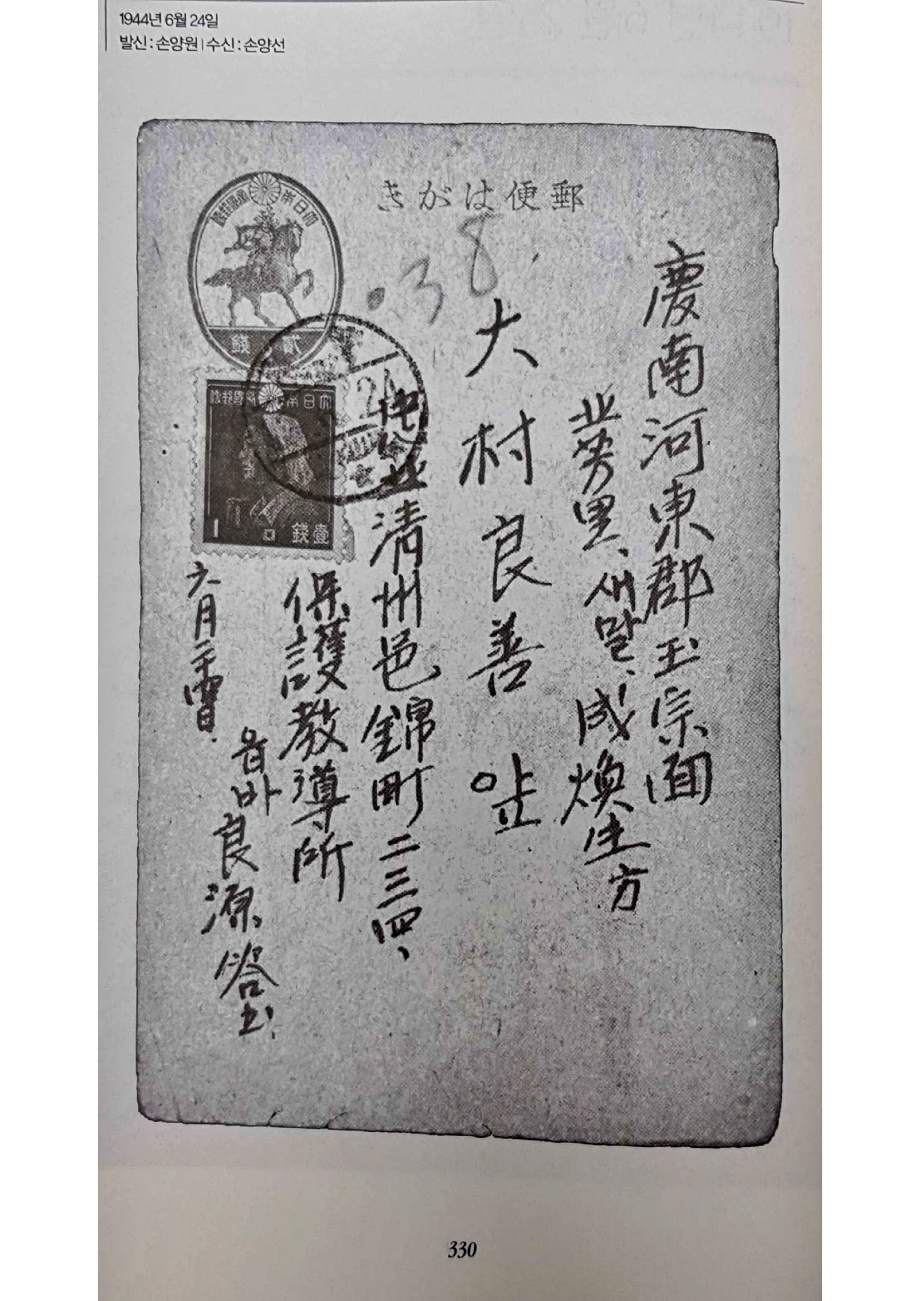 1944년 6월 24일
발신 : 손양원 | 수신 : 손양선
郵便はがき
.38
慶南河東郡玉宗面
北芳里、새말、成煥生方
大村良善 앞
忠北清州邑錦町二三四、
保護教導所
六月二十四日、
옵바 良源答書
大日本帝國郵便
大日本帝國郵便
壹錢
1
330